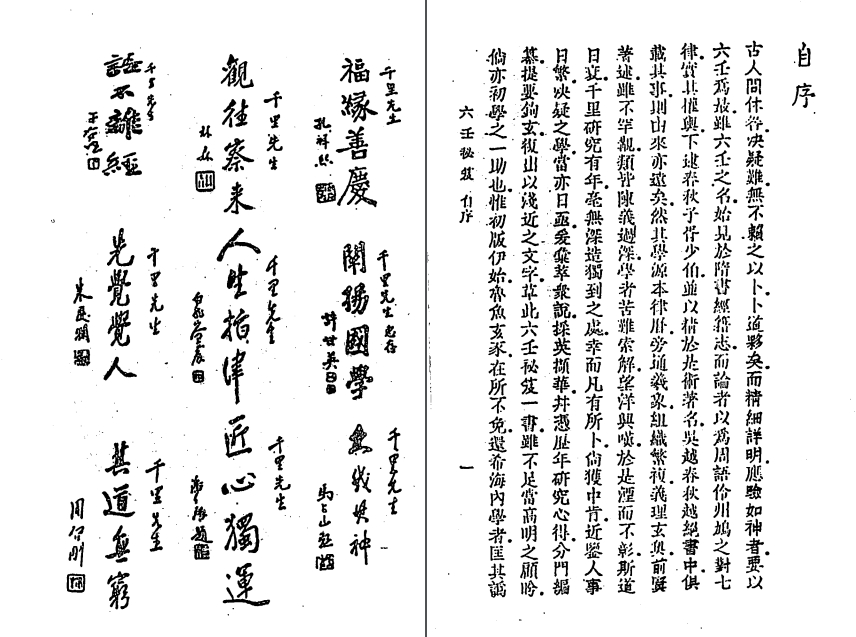 自序
古人問休咎決疑難無不賴之以卜卜道夥矣而精細詳明應驗如神者要以
六壬爲最雖六壬之名始見於隋書經籍志而論者以爲周語伶州鳩之對七
律實其權輿下逮春秋子胥少伯並以精於是術著名吳越春秋越絕書中俱
載其事則由來亦遠矣然其學源本律曆旁通羲象組織繁複義理玄奧前賢
著述雖不罕覯類皆陳義過深學者苦難索解望洋興嘆於是湮而不彰斯道
日衰千里研究有年毫無深造獨到之處幸而凡有所卜尙獲中肯近鑒人事
日繁決疑之學當亦日亟爰彙萃衆說採英擷華幷憑歷年研究心得分門編
纂提要鉤玄復出以淺近之文字草此六壬秘笈一書雖不足當高明之顧盼
倘亦初學之一助也惟初版伊始魯魚玄豕在所不免還希海內學者匡其譌
六壬秘笈 自序
一
千里先生
福緣善慶
孔祥熙
千里先生惠存
闡揚國學
許世英
千里先生
其神
千里先生
觀往察來
林森
千里先生
人生指律
千里先生
匠心獨運
千里先生
語不離經
于右任
千里先生
先覺覺人
朱慶瀾
千里先生
其道無窮